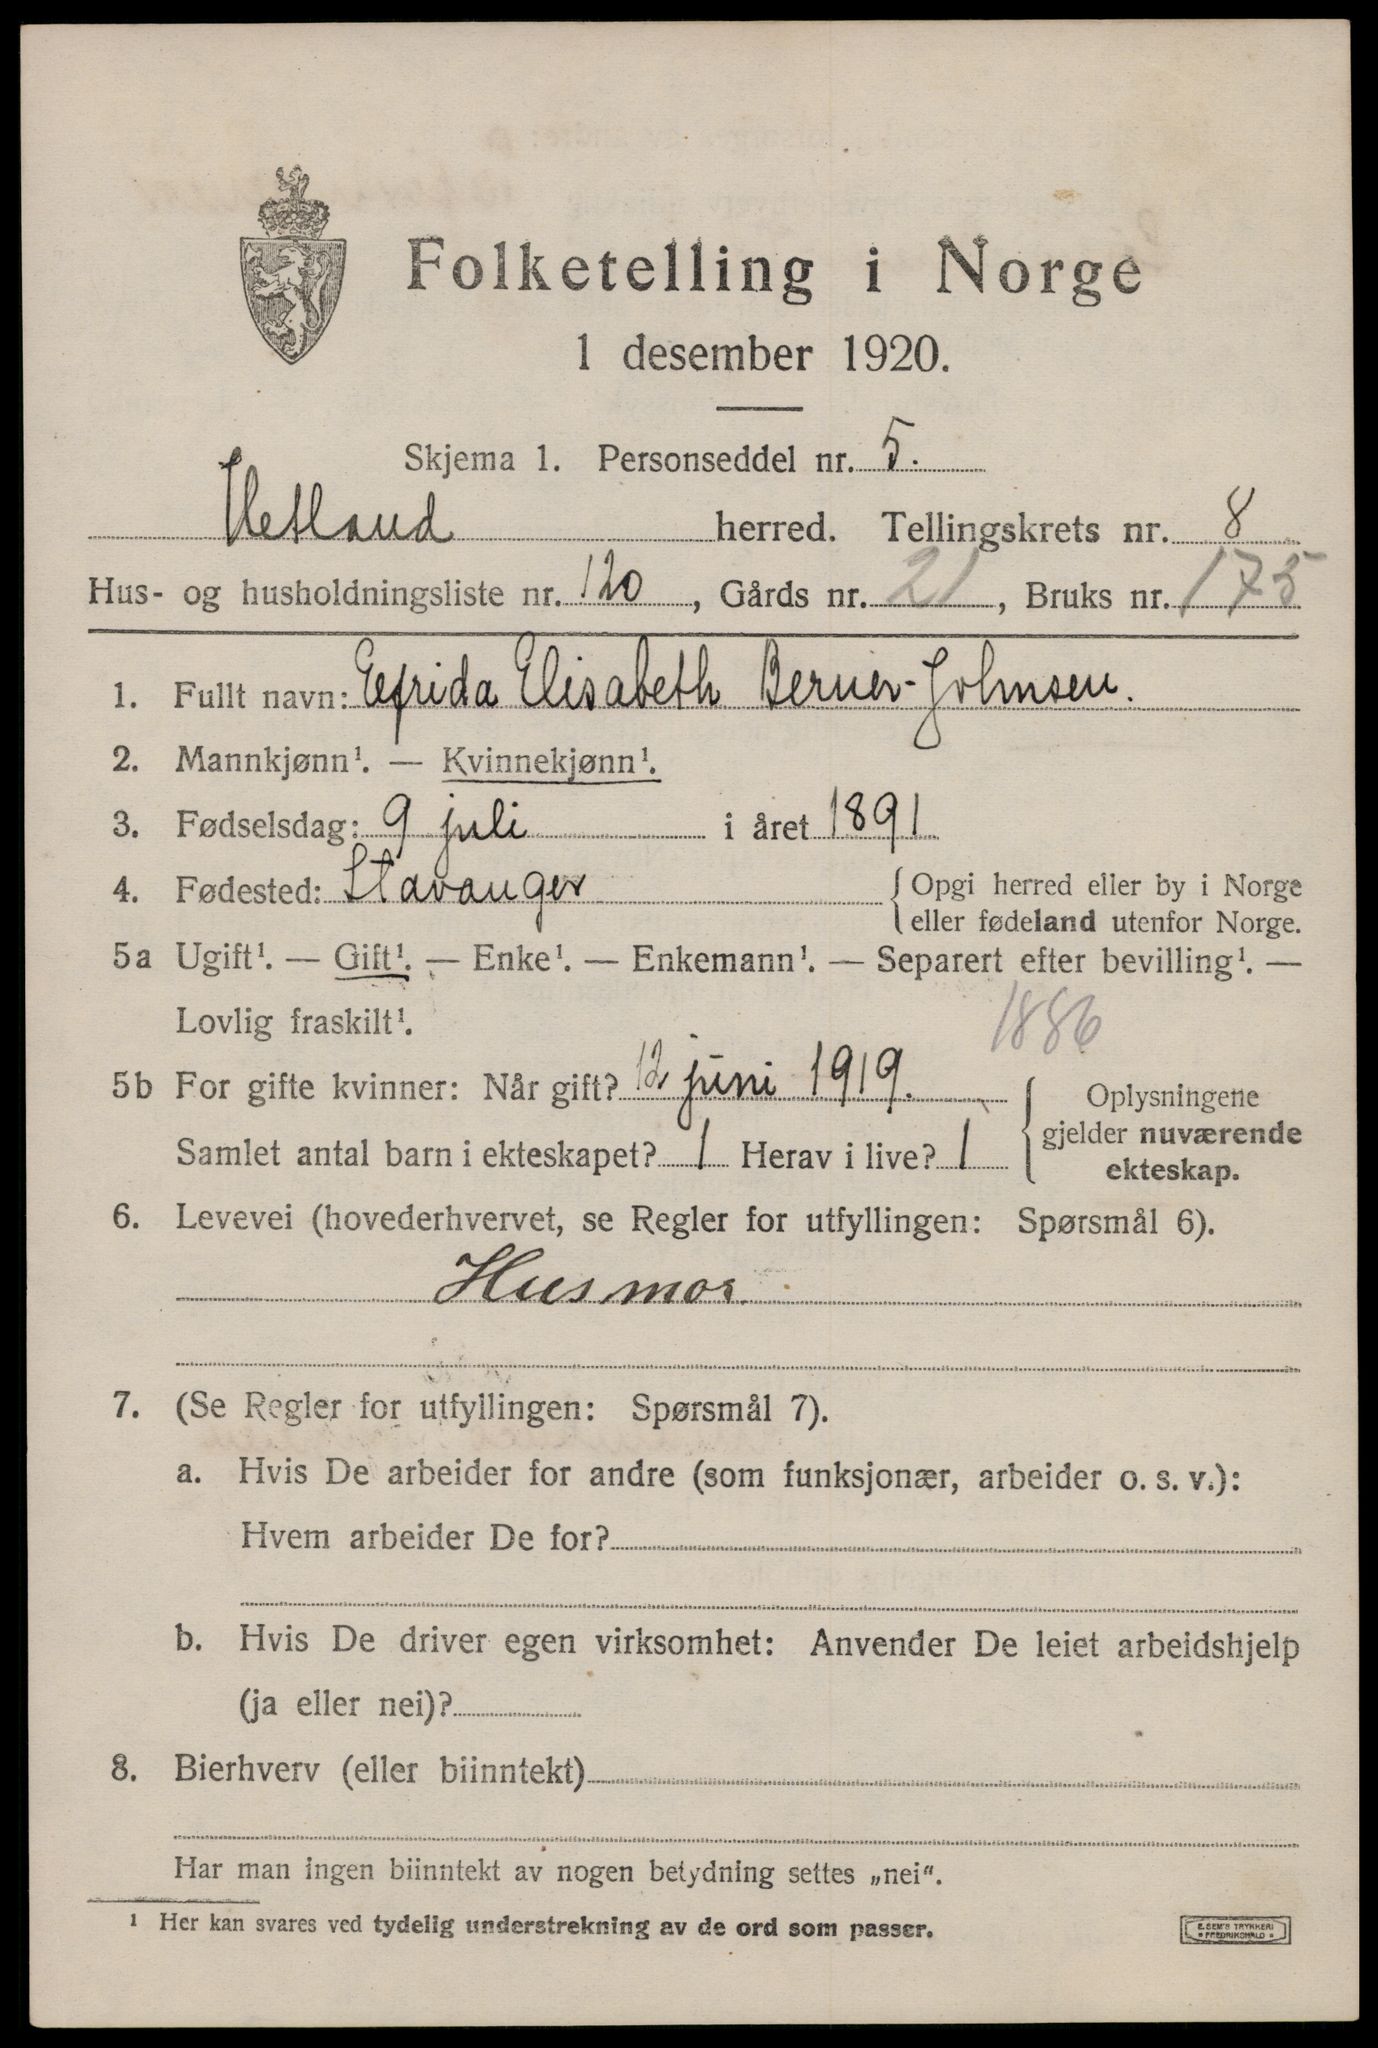 Folketelling i Norge
1 desember 1920.
Skjema 1. Personseddel nr. 5.
Hetland herred. Tellingskrets nr. 8
Hus- og husholdningsliste nr. 120, Gårds nr. 21, Bruks nr. 175
1. Fullt navn: Elfrida Elisabeth Berner-Johnsen.
2. Mannkjønn¹. — Kvinnekjønn¹.
3. Fødselsdag: 9 juli i året 1891
4. Fødested: Stavanger { Opgi herred eller by i Norge
eller fødeland utenfor Norge.
5a Ugift¹. — Gift¹. — Enke¹. — Enkemann¹. — Separert efter bevilling¹. —
Lovlig fraskilt¹. 1886
5b For gifte kvinner: Når gift? 12 juni 1919. { Oplysningene
gjelder nuværende
Samlet antal barn i ekteskapet? 1 Herav i live? 1
ekteskap.
6. Levevei (hovederhvervet, se Regler for utfyllingen: Spørsmål 6).
Husmor
7. (Se Regler for utfyllingen: Spørsmål 7).
a. Hvis De arbeider for andre (som funksjonær, arbeider o. s. v.):
Hvem arbeider De for?
b. Hvis De driver egen virksomhet: Anvender De leiet arbeidshjelp
(ja eller nei)?
8. Bierhverv (eller biinntekt)
Har man ingen biinntekt av nogen betydning settes „nei“.
¹ Her kan svares ved tydelig understrekning av de ord som passer.
E. SEM'S TRYKKERI
FREDRIKSHALD